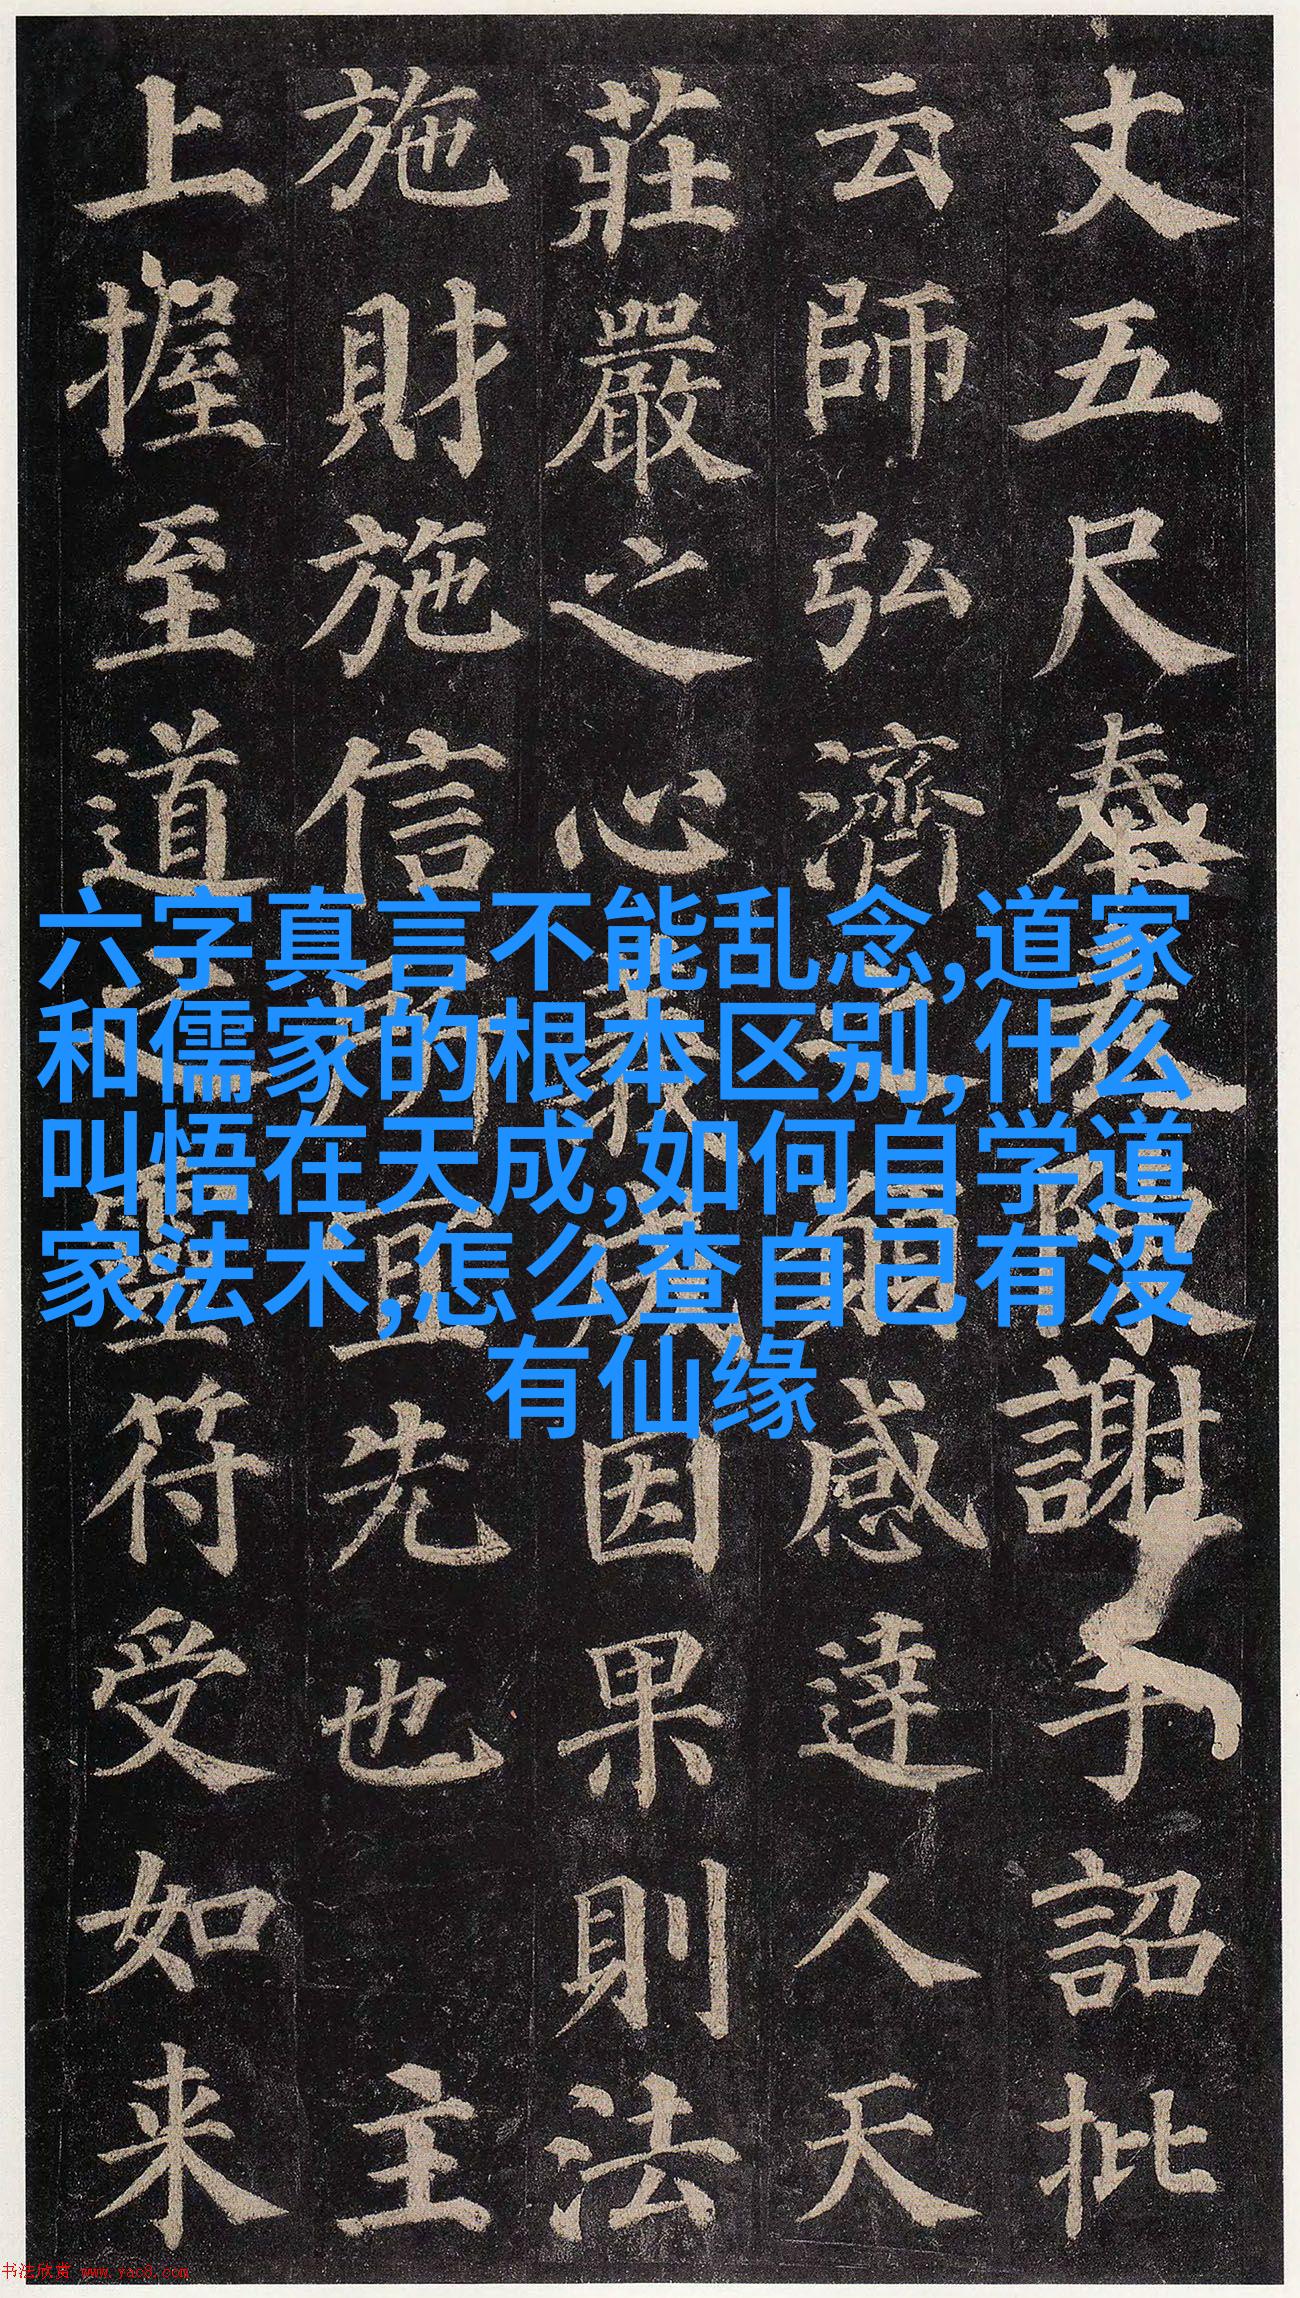 丈五尺奉謝手詔批
云師弘濟之願感達人天
莊嚴之心義成因果則法
施財施信所宜先也 主
上握至道之靈符受如来
六字真言不能乱念,道家
和儒家的根本区别,什么
叫悟在天成,如何自学道
家法术,怎么查自己有没
有仙缘
书法欣赏 www.yac8.com